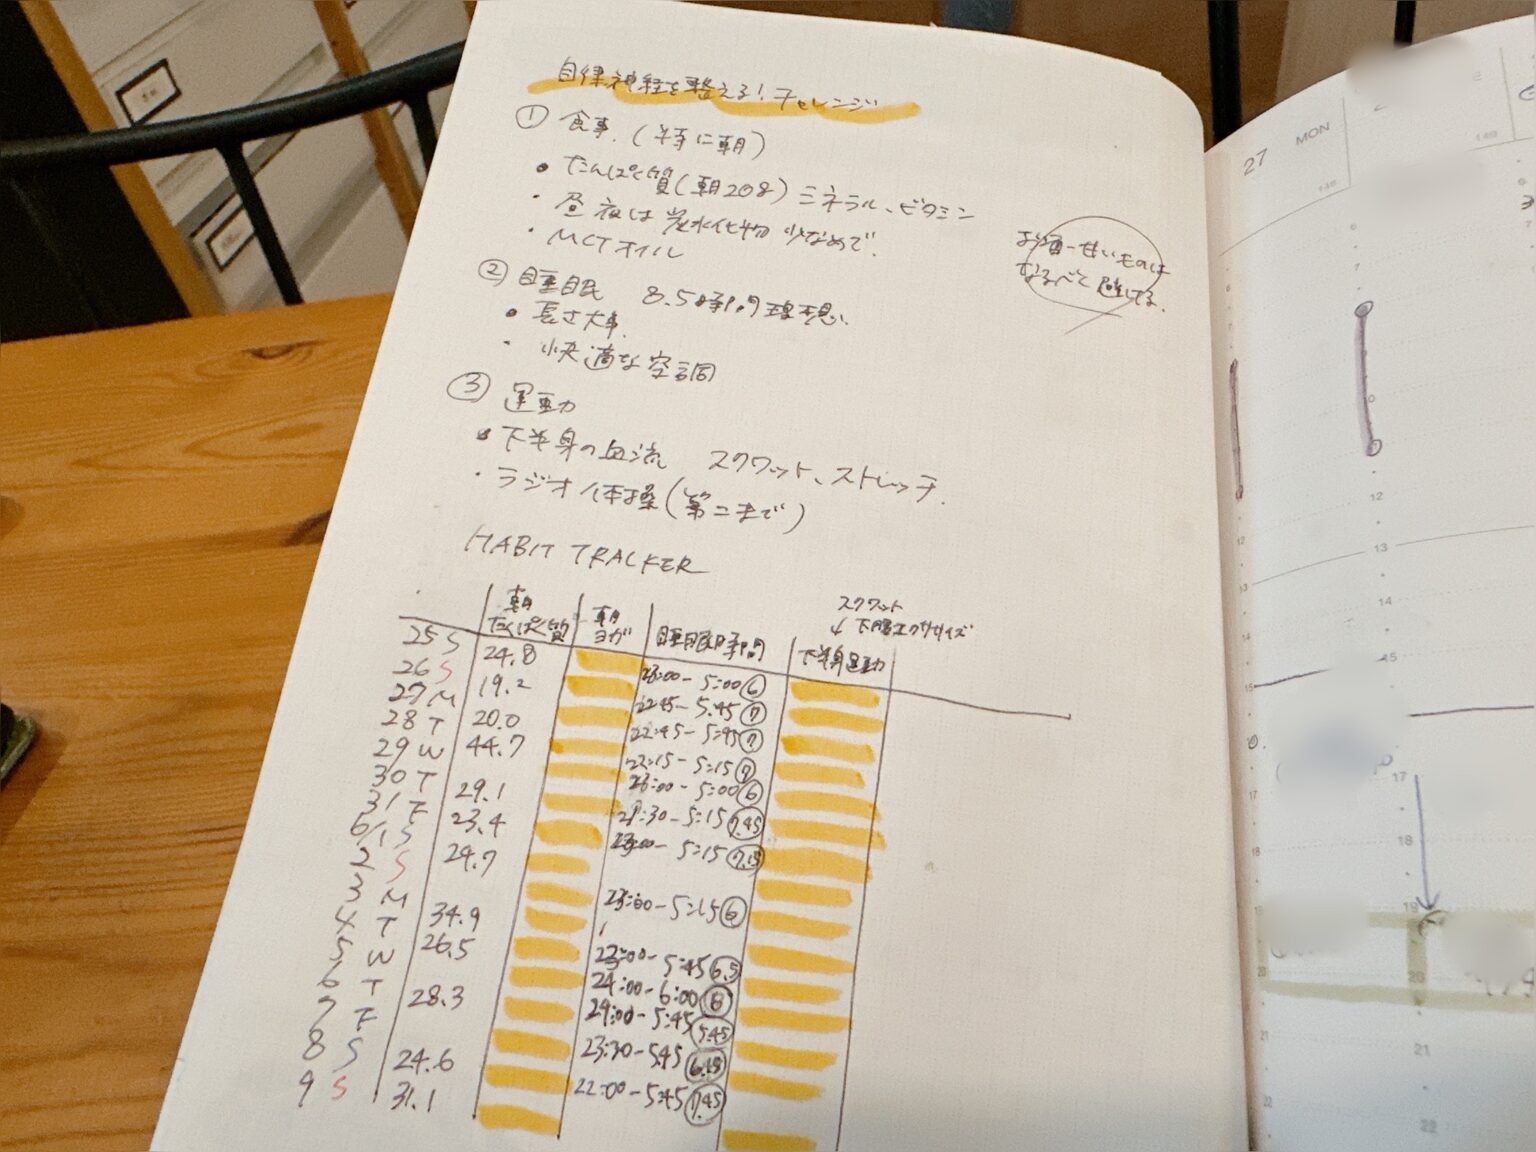 自律神経を整える!チャレンジ
① 食事.(特に朝)
• たんぱく質(朝20g)ミネラル、ビタミン
・昼夜は炭水化物少なめで.
・MCTオイル
お酒・甘いものは
なるべく避ける.
② 睡眠 8.5時間理想.
• 長さ大事.
・快適な空調
③ 運動
• 下半身の血流 スクワット、ストレッチ.
・ラジオ体操(第二まで)
HABIT TRACKER
スクワット
↓ 下腹エクササイズ
朝たんぱく質 朝ヨガ 睡眠時間 下半身運動
25 S 24.8 23:00-5:00 ⑥
26 S 19.2 22:45-5:45 ⑦
27 M 20.0 22:45-5:45 ⑦
28 T 44.7 22:15-5:15 ⑦
29 W 23:00-5:00 ⑥
30 T 29.1 21:30-5:15 7.45
31 F 23.4 5:15 7.15
6/1 S 24.7
2 S 23:00-5:15 ⑥
3 M 34.9
4 T 26.5 23:00-5:45 6.5
5 W 24:00-6:00
6 T 28.3 24:00-5:45 5.45
7 F 23:30-5:45 6.15
8 S 24.6 22:00-5:45 7.45
9 S 31.1
27 MON
148
149
6
7
12
13
14
15
17
18
19
20
21
22